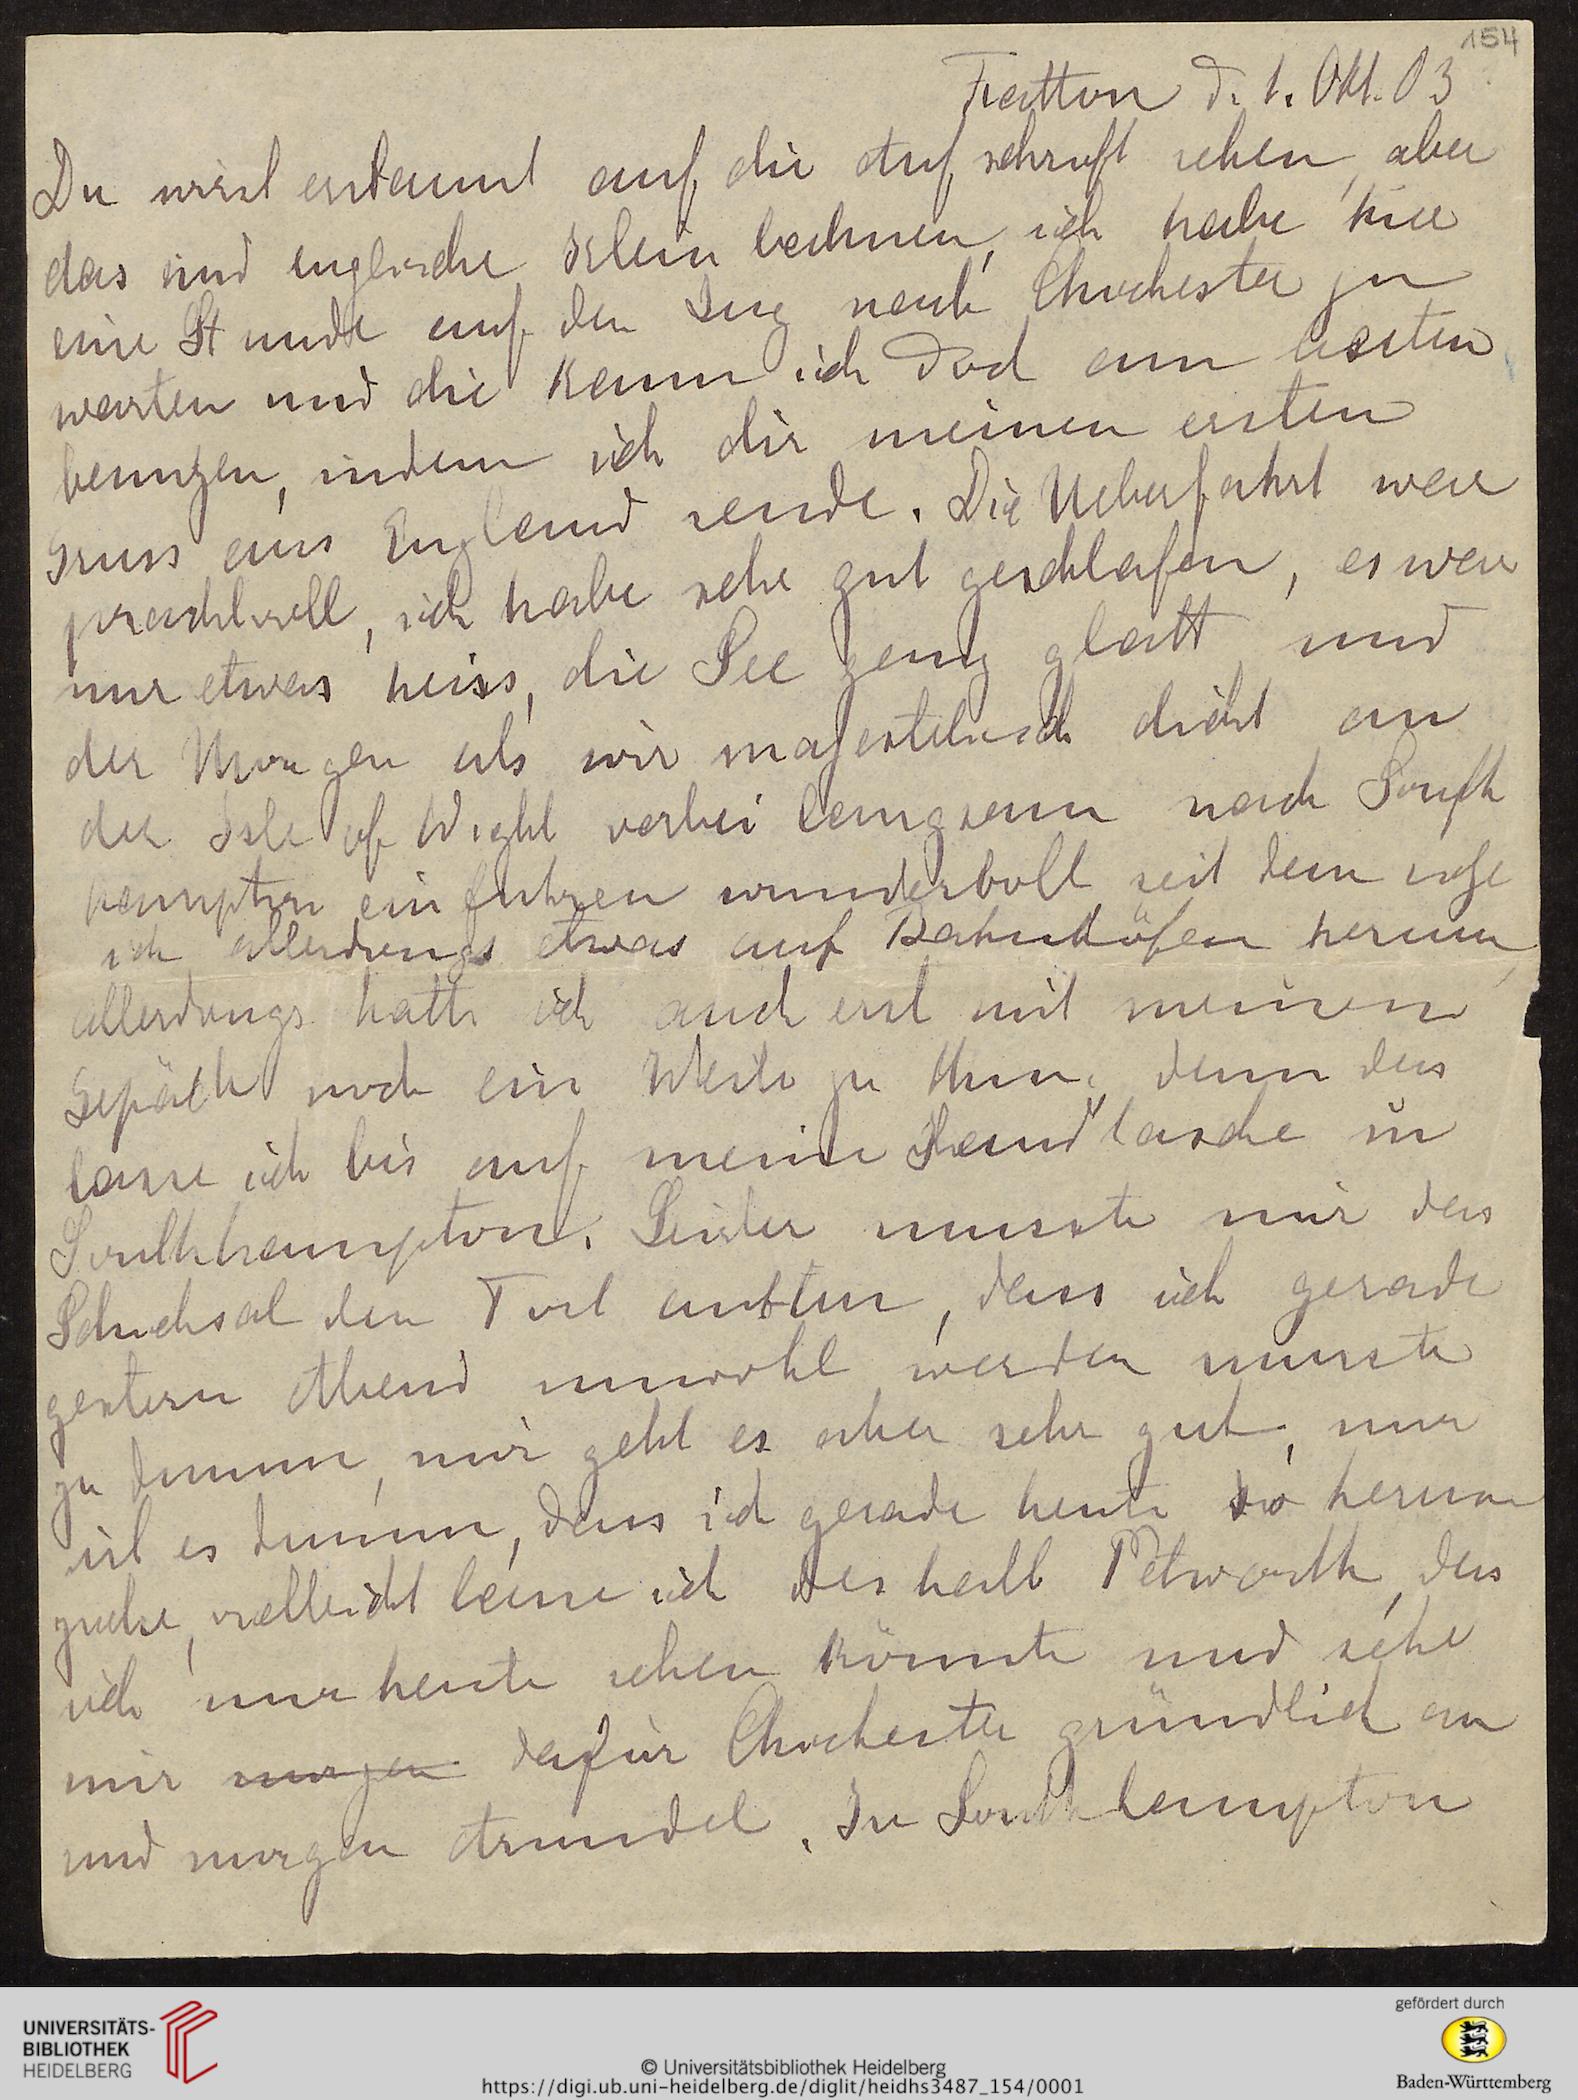 154
Fratton d. 1. Okt. 03
Du wirst erstaunt auf die Aufschrift sehen, aber
das sind englische Kleinbahnen, ich habe hier
eine Stunde auf den Zug nach Chichester zu
warten und die kann ich doch am besten
benutzen, indem ich dir meinen ersten
Gruss aus England sende. Die Ueberfahrt war
prachtvoll, ich habe sehr gut geschlafen, es war
nur etwas heiss, die See ganz glatt und
der Morgen als wir majestetisch dicht an
der Isle of Wight vorbei langsam nach South
hampton einfuhren wundervoll, seit dem
ich allerdings etwas auf Bahnhöfen herum,
allerdings hatte ich auch erst mit meinem
Gepäck noch eine Weile zu thun, denn das
lasse ich bis auf meine Handtasche in
Southhampton. Leider musste mir das
Schicksal den Tort anthun, dass ich gerade
gestern Abend unwohl werden musste
zu dumm, mir geht es aber sehr gut, nur
ist es dumm, dass ich gerade heute so herum
, vielleicht lasse ich deshalb Petworth, das
ich nur heute sehen könnte und sehe
mir morgen dafür Chichester gründlich an
und morgen Arundel. In Southhampton
UNIVERSITÄTS-
BIBLIOTHEK
HEIDELBERG
gefördert durch
Baden-Württemberg
© Universitätsbibliothek Heidelberg
https://digi.ub.uni-heidelberg.de/diglit/heidhs3487_154/0001